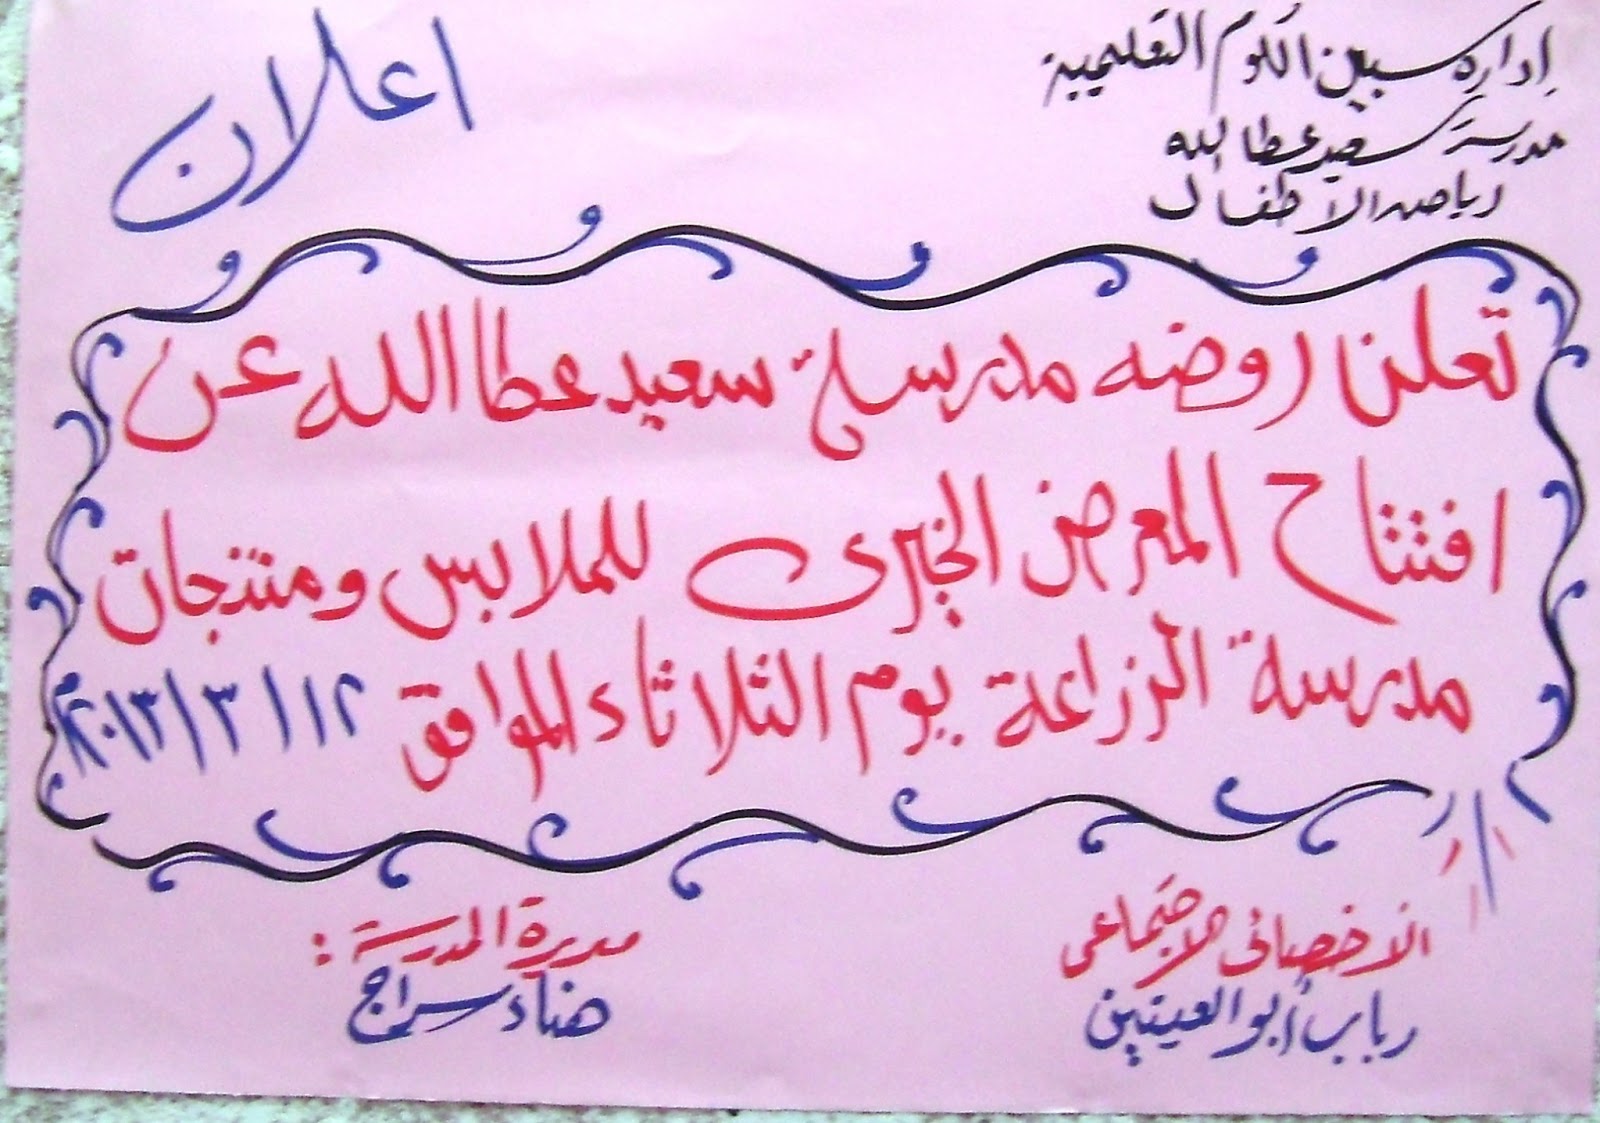 إدارة شبين الكوم التعليمية
مدرسة سعيد عطا الله
رياض الأطفال
اعلان
تعلن روضه مدرسة سعيد عطا الله عن
افتتاح المعرض الخيرى للملابس ومنتجات
مدرسة الزراعة يوم الثلاثاء الموافق ١٢/٣/٢٠١٣م
الأخصائى الاجتماعى
رباب أبو العينين
مديرة المدرسة :
هناء سراج